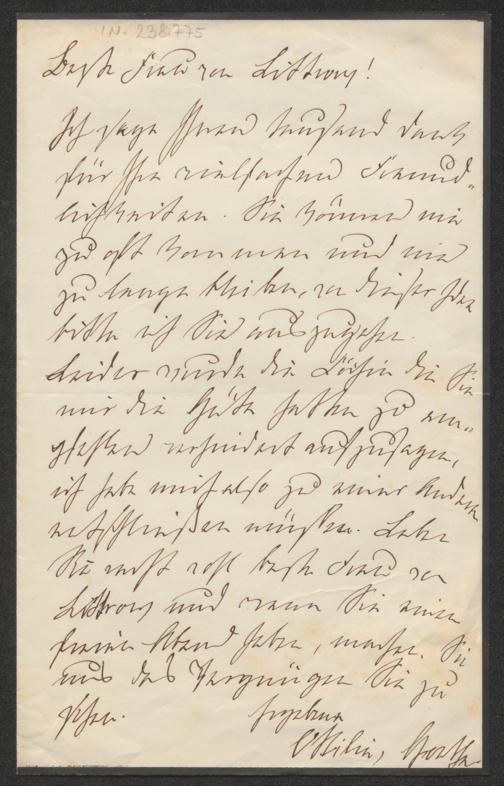 I.N. 238.775
Beste Frau von Littrow!
Ich sage Ihnen tausend Dank
für Ihre vielfachen Freund-
lichkeiten. Sie können nie
zu oft kommen und nie
zu lange bleiben, von dieser Idee
bitte ich Sie auszugehen.
Leider wurde die Köchin die Sie
mir die Güte hatten zu em-
pfehlen verhindert aufzusagen,
ich habe mich also zu einer Andern
entschließen müssen. Leben
Sie recht wohl beste Frau von
Littrow und wenn Sie einen
freien Abend haben, machen Sie
uns das Vergnügen Sie zu
sehen. Ergebene
Ottilie, Goethe